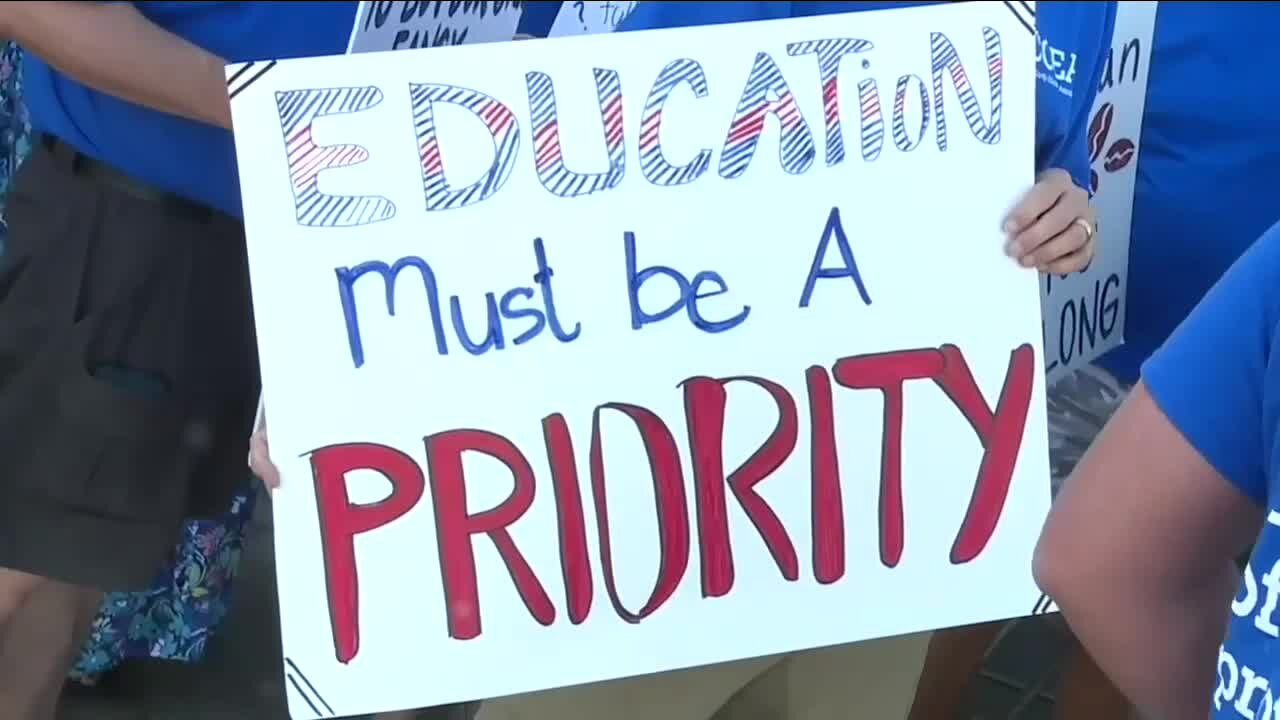 EDUCATiON
Must be A
PRIORITY
LONG